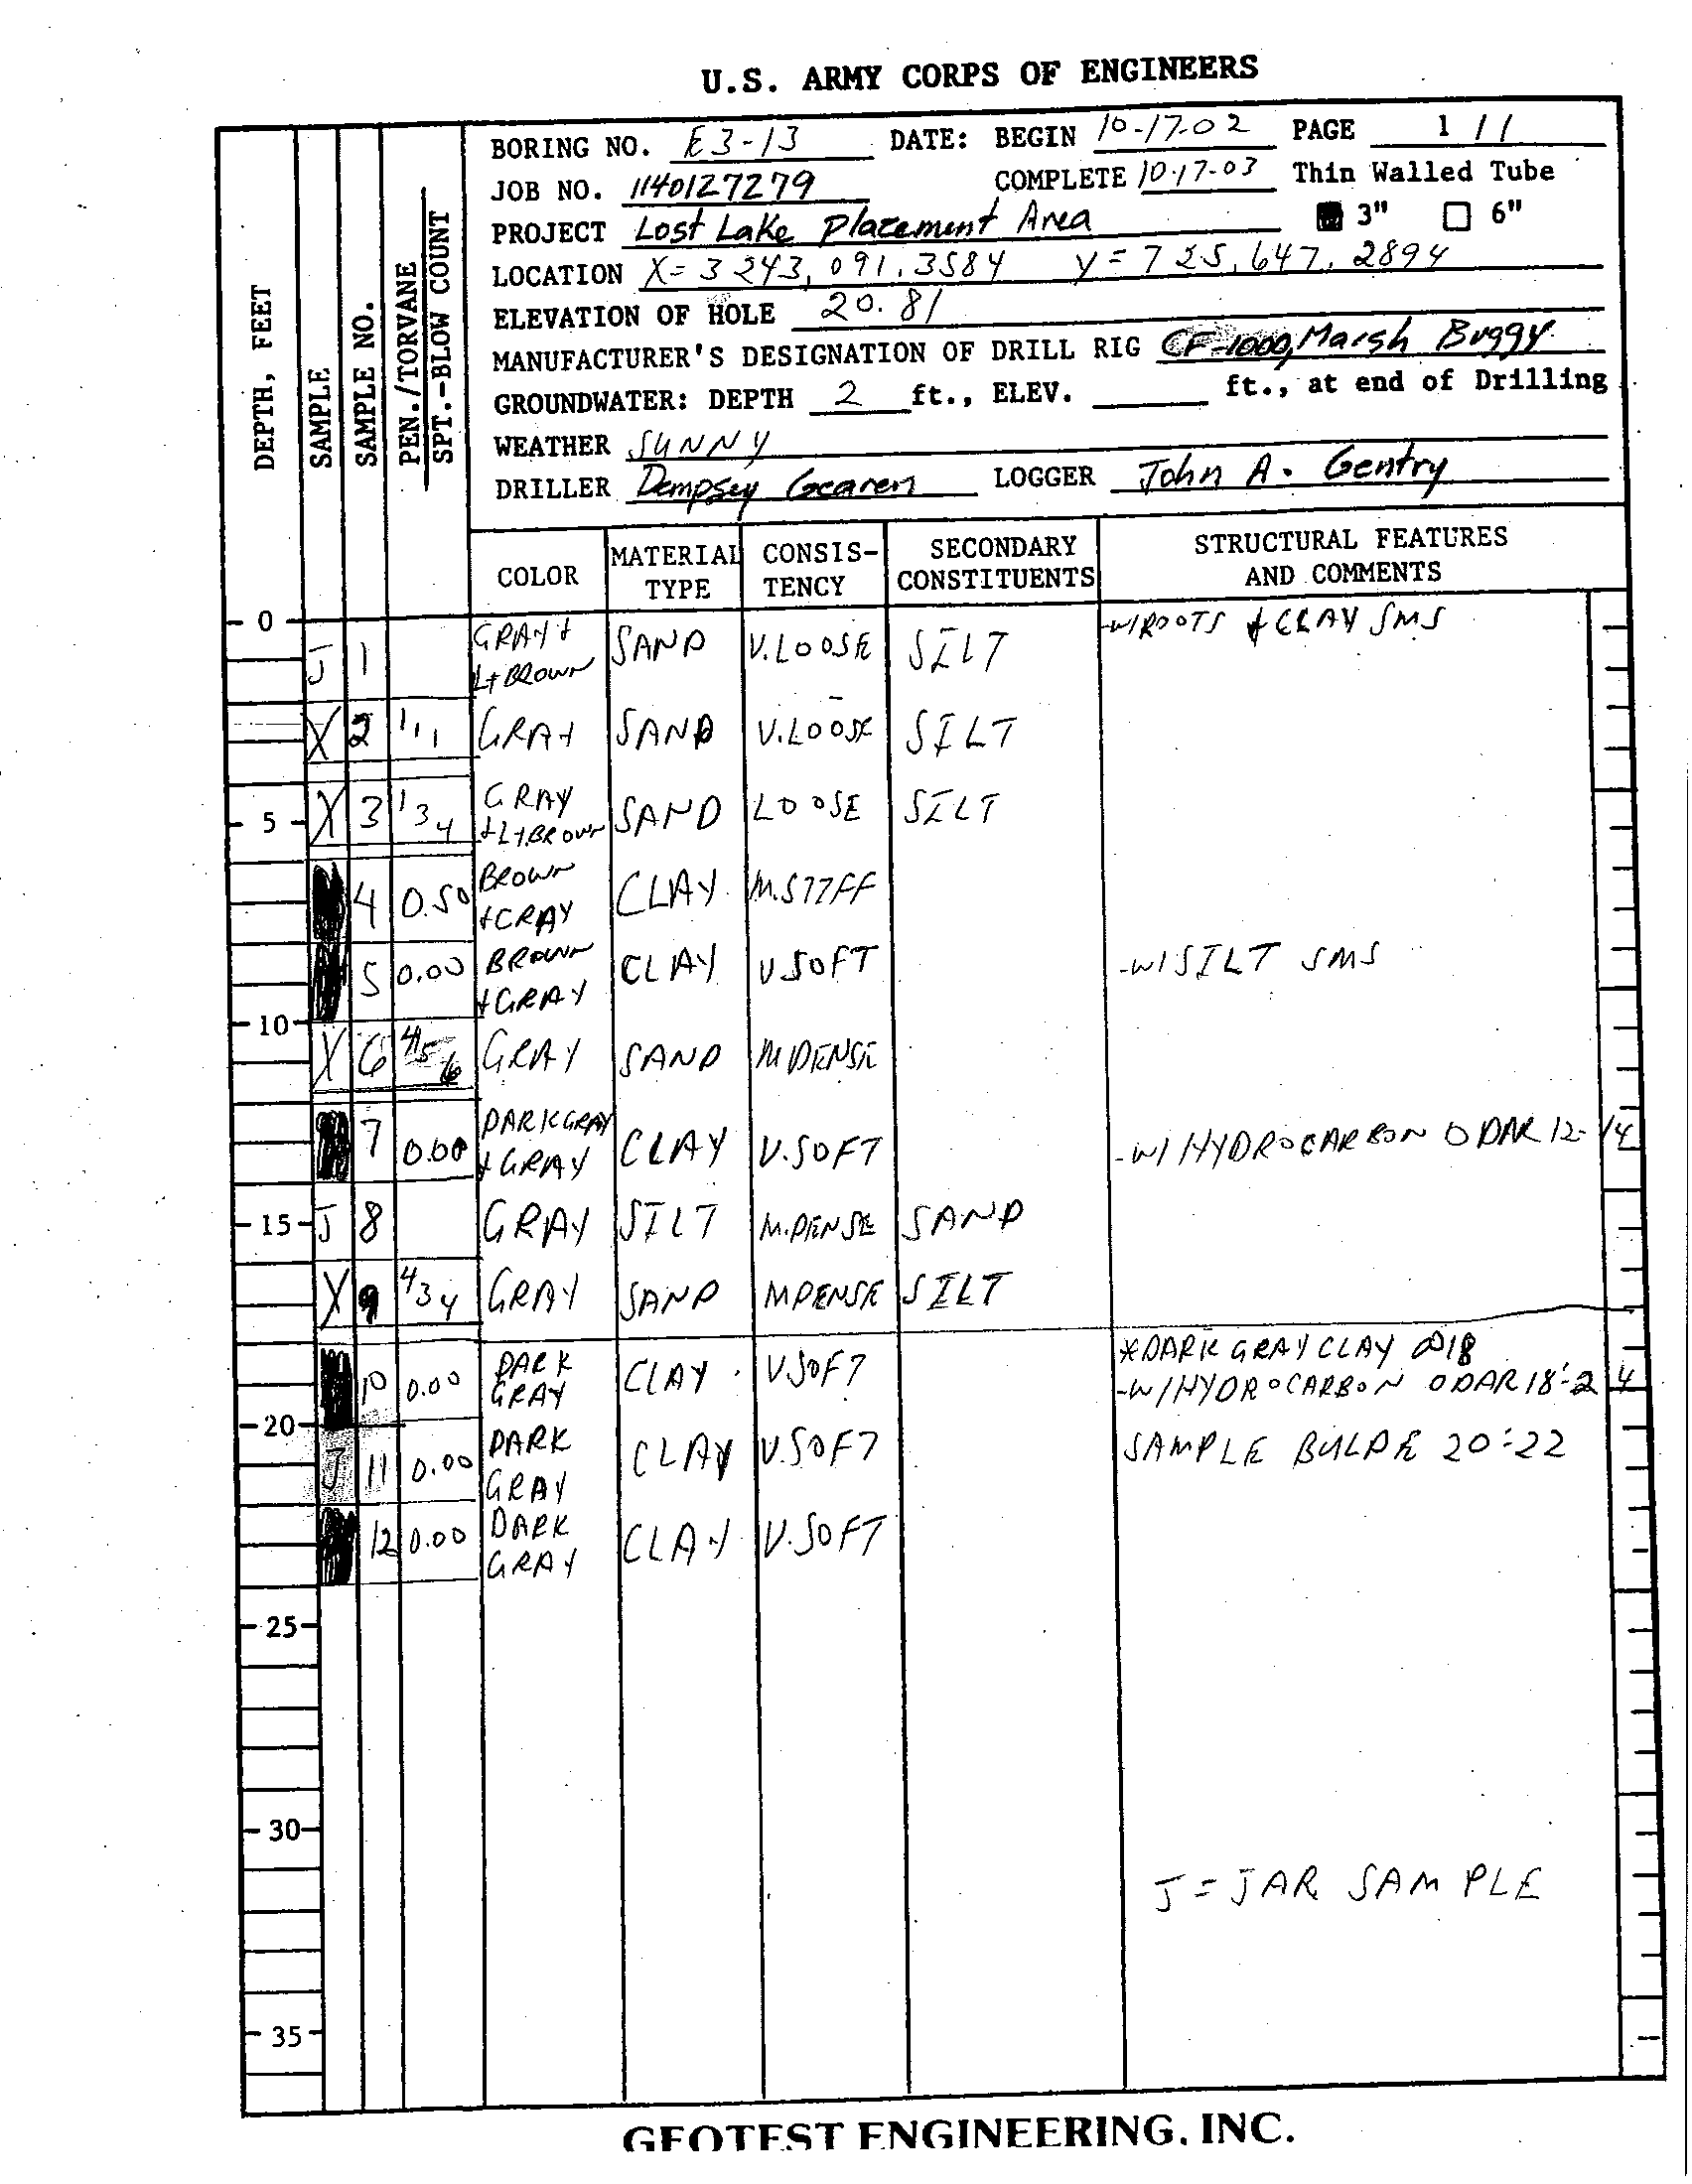 U.S. ARMY CORPS OF ENGINEERS
BORING NO. E3-13 DATE: BEGIN 10-17-02 PAGE 1 / 1
JOB NO. 1140127279 COMPLETE 10-17-03 Thin Walled Tube
PROJECT Lost Lake Placement Area 3" 6"
LOCATION X= 3 243, 091.3584 y = 725,647.2894
ELEVATION OF HOLE 20.81
MANUFACTURER'S DESIGNATION OF DRILL RIG CF-1000, Marsh Buggy
GROUNDWATER: DEPTH 2 ft., ELEV. ft., at end of Drilling
WEATHER SUNNY
DRILLER Dempsey Gearen LOGGER John A. Gentry
DEPTH, FEET
SAMPLE
SAMPLE NO.
PEN./TORVANE
SPT.-BLOW COUNT
COLOR MATERIAL TYPE CONSIS-TENCY SECONDARY CONSTITUENTS STRUCTURAL FEATURES AND COMMENTS
0
J 1 GRAY + Lt BROWN SAND V.LOOSE SILT -W/ROOTS + CLAY SMS
X 2 1/1 1 GRAY SAND V.LOOSE SILT
5 X 3 1/3 4 GRAY + Lt BROWN SAND LOOSE SILT
4 0.50 BROWN + GRAY CLAY M.STIFF
5 0.00 BROWN + GRAY CLAY V SOFT -W/SILT SMS
10
X 6 4/5 6 GRAY SAND M DENSE
7 0.00 DARK GRAY + GRAY CLAY V.SOFT -W/ HYDROCARBON ODAR 12-14
15 J 8 GRAY SILT M.DENSE SAND
X 9 4/3 4 GRAY SAND M DENSE SILT
10 0.00 DARK GRAY CLAY V.SOFT *DARK GRAY CLAY @18
-W/HYDROCARBON ODAR 18'-24
20
J 11 0.00 DARK GRAY CLAY V.SOFT SAMPLE BULDE 20'-22
12 0.00 DARK GRAY CLAY V.SOFT
25
30
J = JAR SAMPLE
35
GEOTEST ENGINEERING, INC.